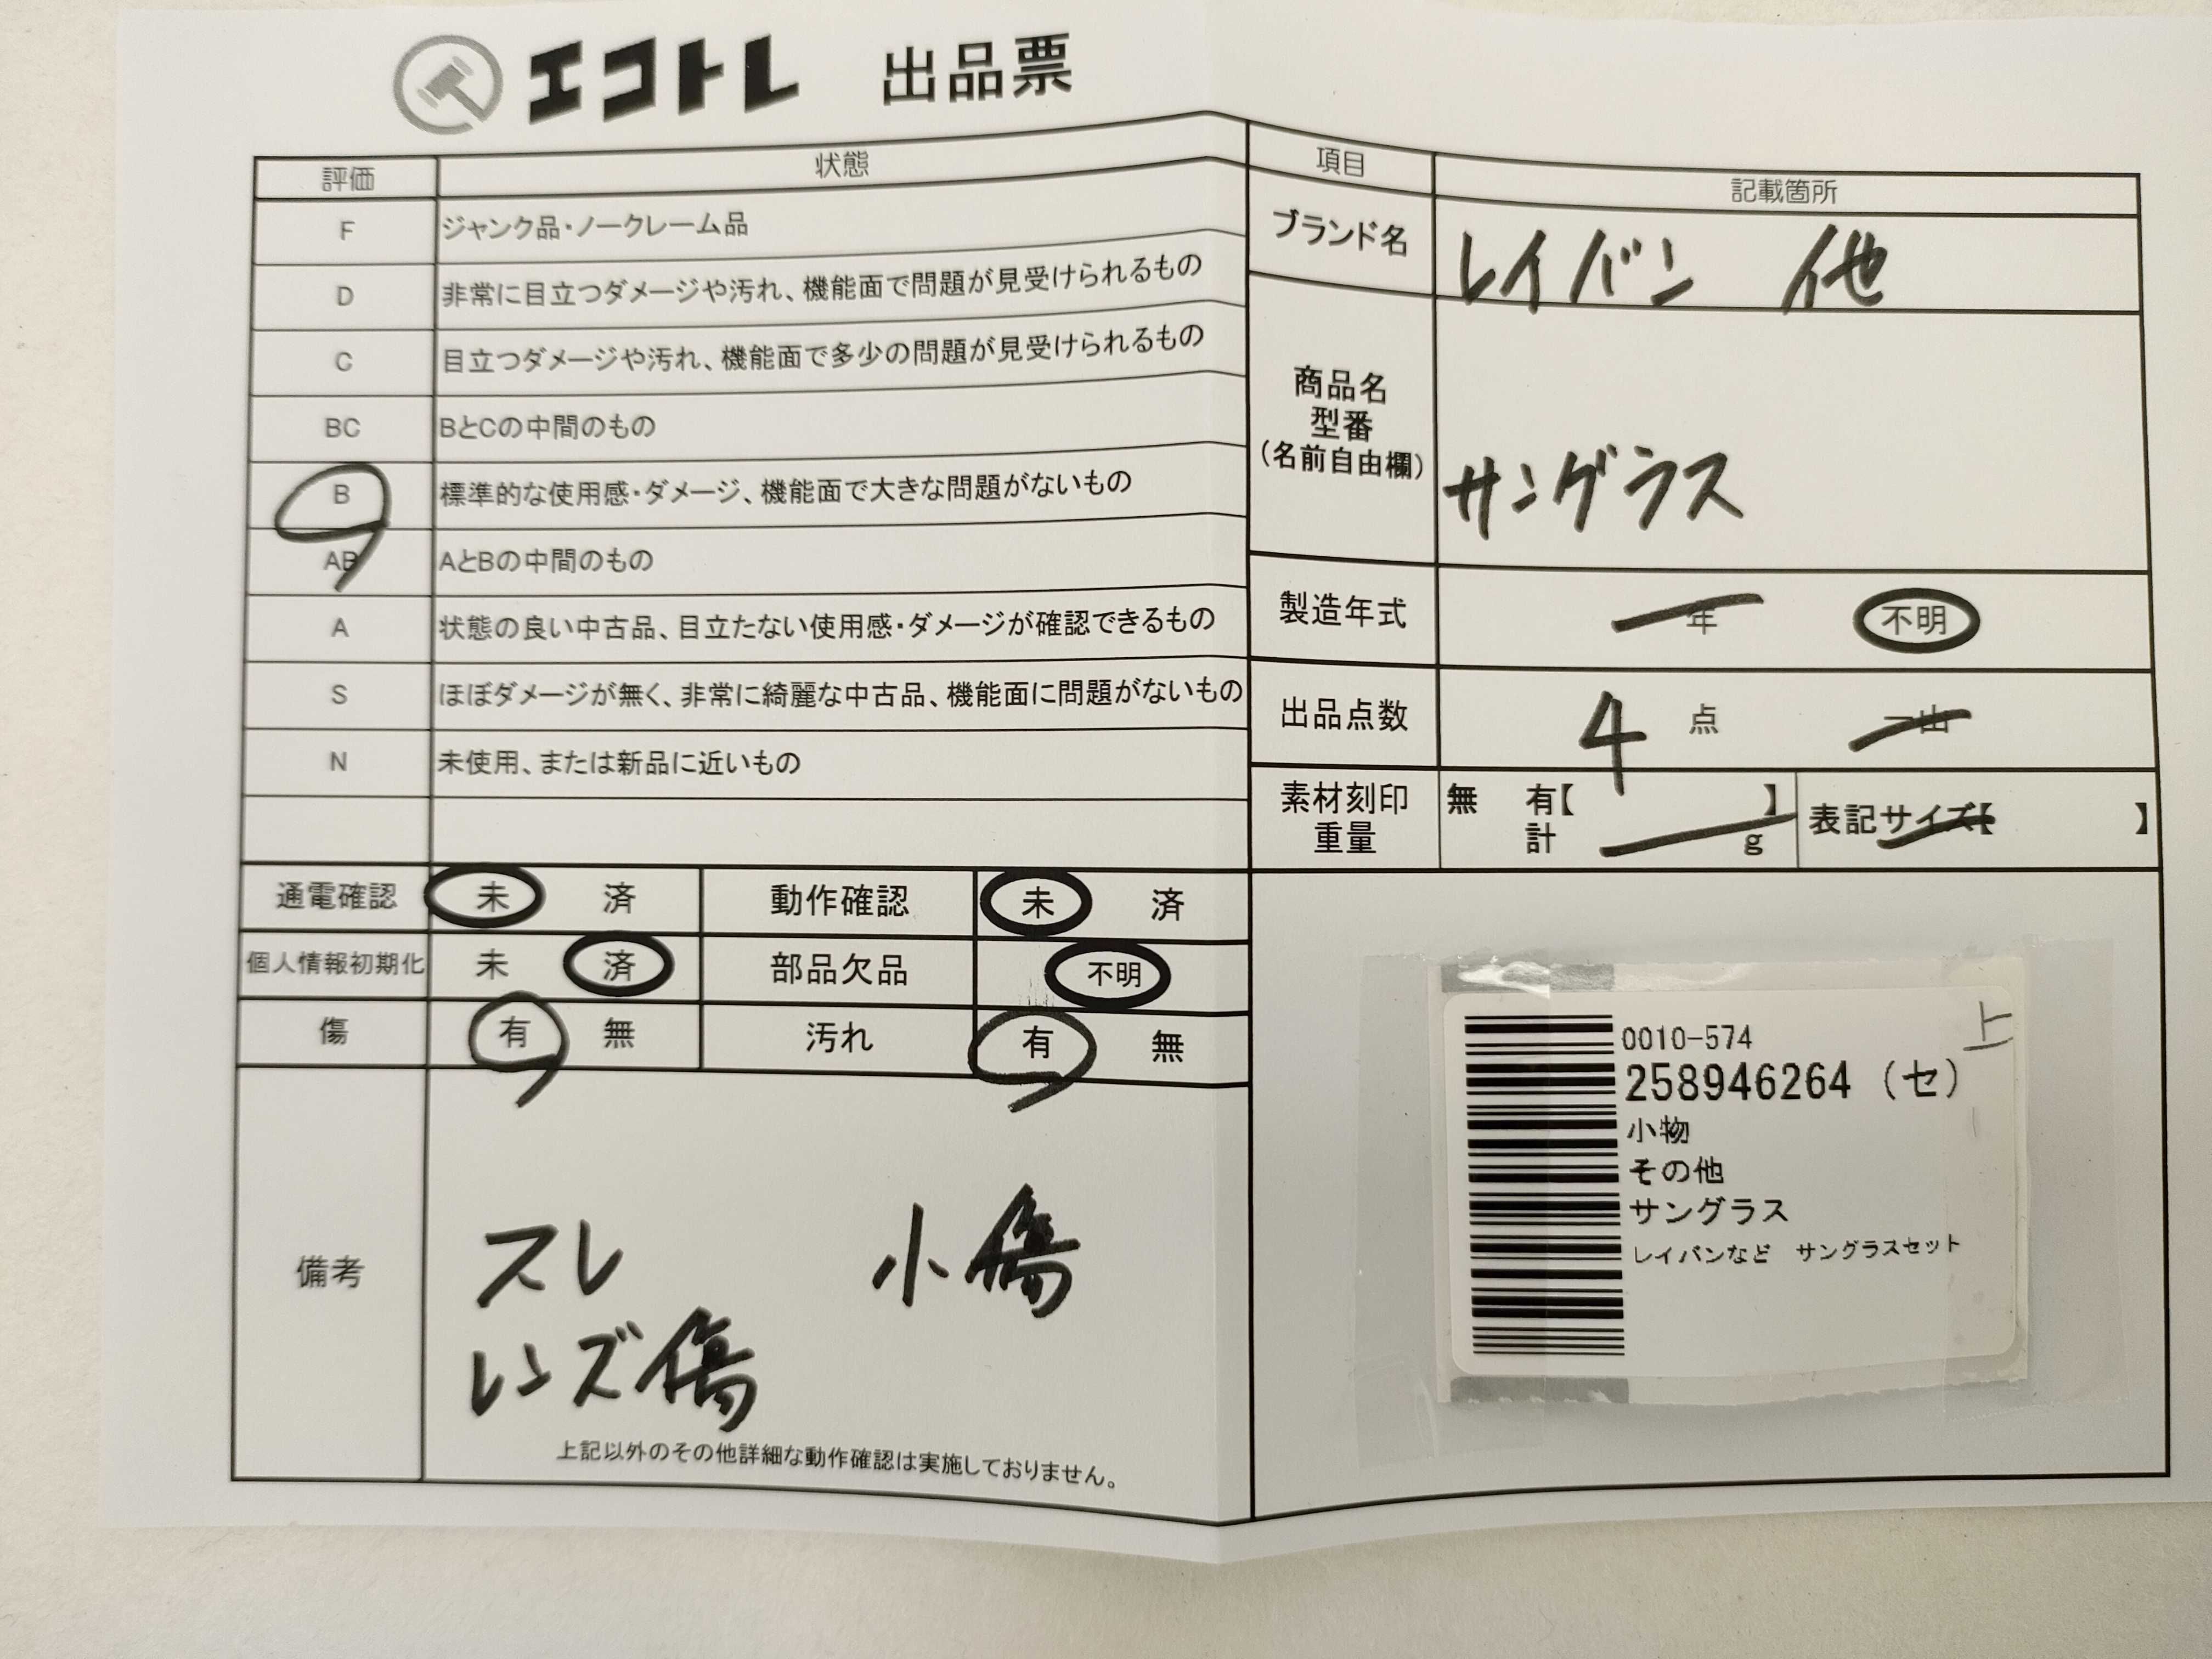 エコトレ 出品票
評価 状態
F ジャンク品・ノークレーム品
D 非常に目立つダメージや汚れ、機能面で問題が見受けられるもの
C 目立つダメージや汚れ、機能面で多少の問題が見受けられるもの
BC BとCの中間のもの
B 標準的な使用感・ダメージ、機能面で大きな問題がないもの
AB AとBの中間のもの
A 状態の良い中古品、目立たない使用感・ダメージが確認できるもの
S ほぼダメージが無く、非常に綺麗な中古品、機能面に問題がないもの
N 未使用、または新品に近いもの
通電確認 未 済 動作確認 未 済
個人情報初期化 未 済 部品欠品 不明
傷 有 無 汚れ 有 無
備考
スレ 小傷
レンズ傷
上記以外のその他詳細な動作確認は実施しておりません。
項目 記載箇所
ブランド名 レイバン 他
商品名
型番
(名前自由欄)
サングラス
製造年式 年 不明
出品点数 4 点 一山
素材刻印 無 有【 】
重量 計 g
表記サイズ【 】
上
0010-574
258946264 (セ)
小物
その他
サングラス
レイバンなど サングラスセット